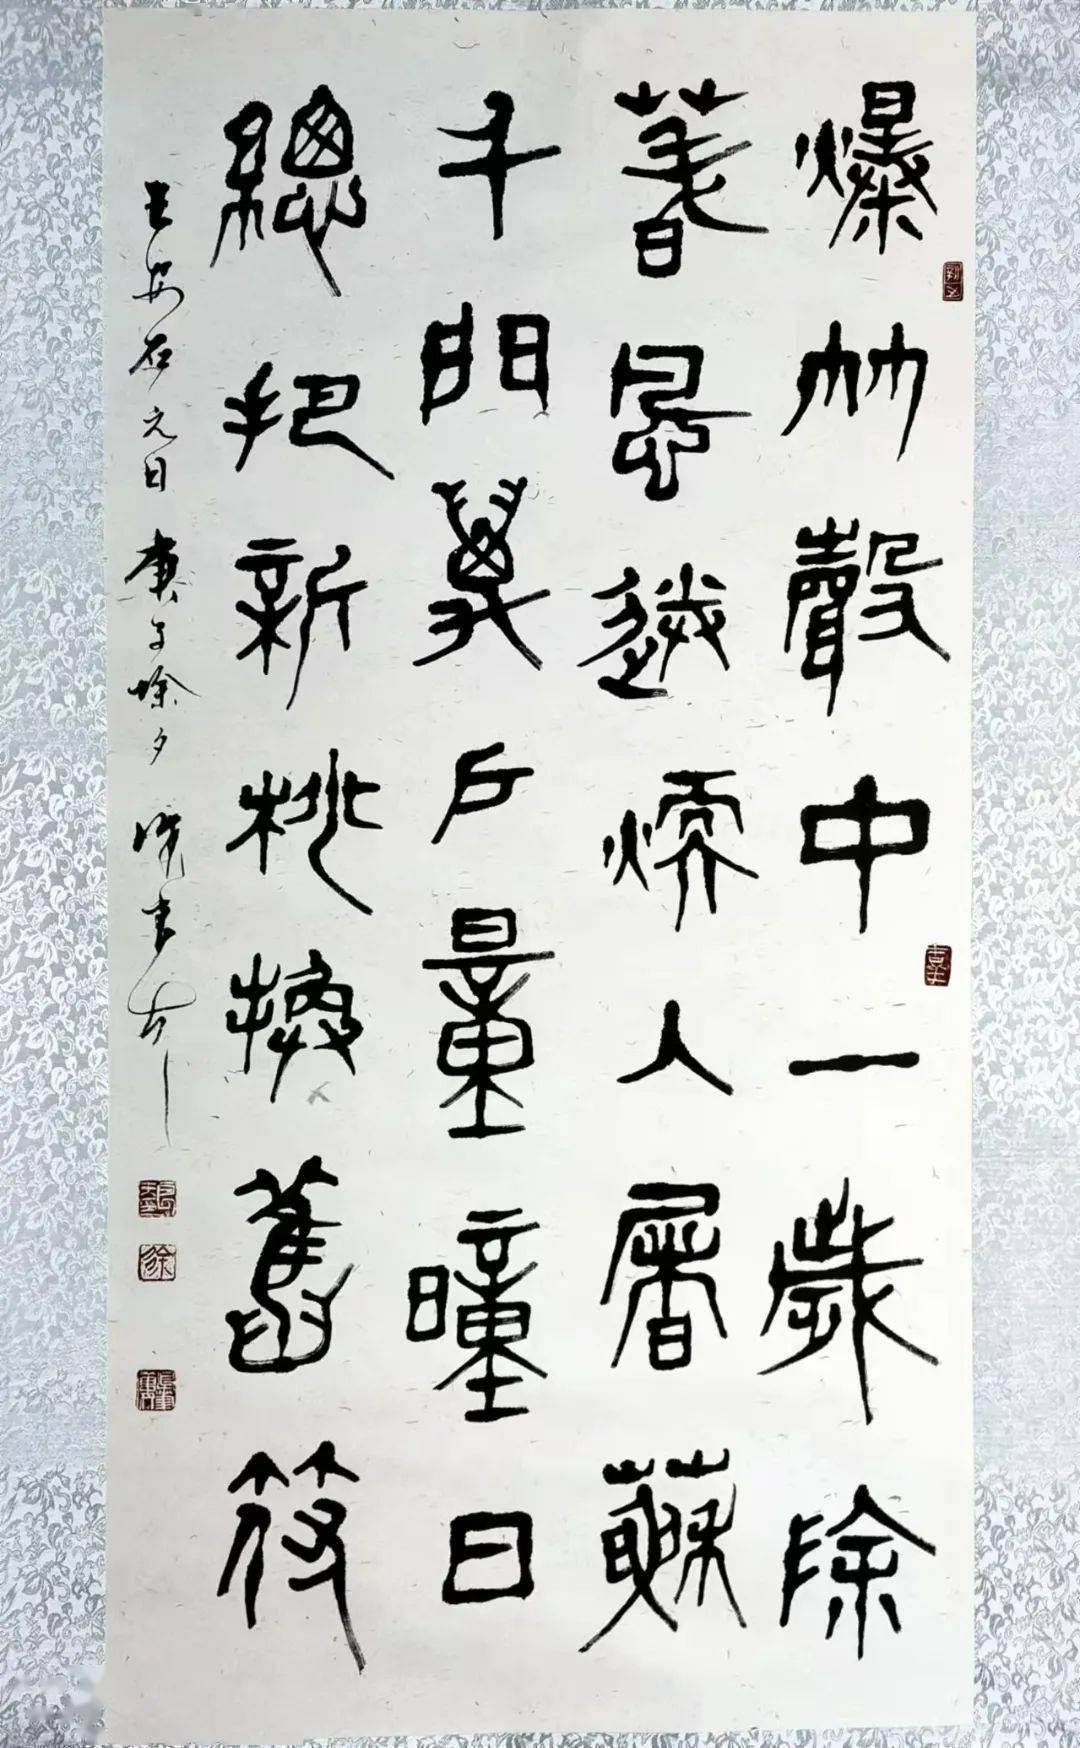 爆竹聲中一歲除
春風送煗入屠蘇
千門萬戶曈曈日
總把新桃換舊符
王安石元日 庚子除夕